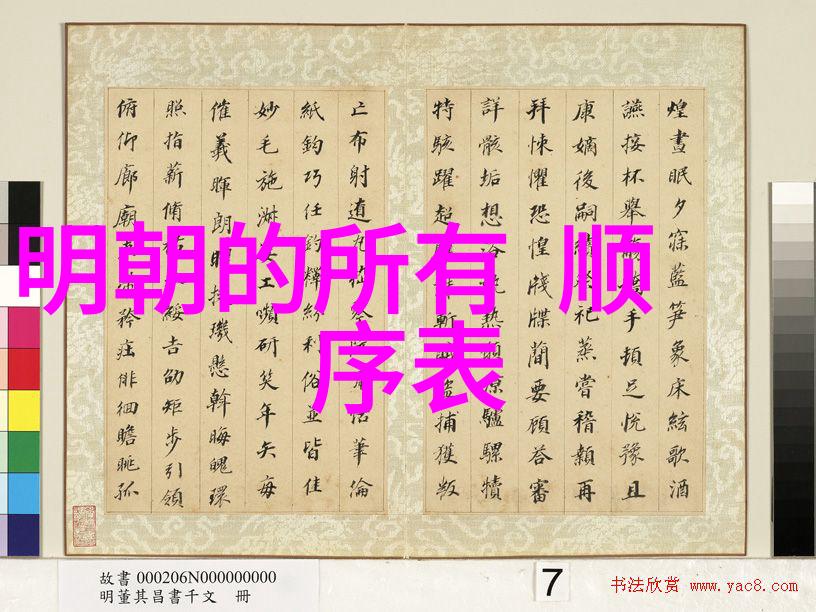 明朝的所有 顺
序表
煌晝眠夕寐藍笋象床絃歌酒
讌接杯舉手頓足悅豫且
康嫡後嗣續祀蒸嘗稽顙再
拜悚懼恐惶牋牒簡要顧答審
詳骸垢想浴熱願凉驢騾犢
特駭躍超斬捕獲叛
亡布射遼丸恬筆倫
紙鈞巧任釣釋紛利俗並皆佳
妙毛施淑姿工嚬妍笑年矢每
催羲暉朗曜璣懸斡晦魄環
照指薪脩祜綏吉劭矩步引領
俯仰廊廟矜莊徘徊瞻眺孤
故書 000206N000000000
明董其昌書千文 冊
7
书法欣赏 www.yac8.com